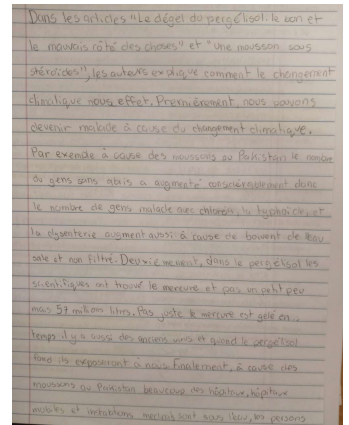 Dans les articles "Le dégel du pergélisol: le bon et
le mauvais côté des choses" et "Une mousson sous
stéroïdes", les auteurs explique comment le changement
climatique nous effet. Premièrement, nous pouvons
devenir malade à cause du changement climatique.
Par exemple à cause des moussons au Pakistan le nombre
du gens sans abris a augmenté considérablement donc
le nombre de gens malade avec la typhoïde, et
la dysenterie augment aussi à cause de boivent de l'eau
sale et non filtré. Deuxièmement, dans le pergélisol les
scientifiques ont trouvé le mercure et pas un petit peu
mais 57 millions litres. Pas juste le mercure est gelé en
temps il y a aussi des anciens virus et quand le pergélisol
fond ils exposeront à nous. Finalement, à cause des
moussons au Pakistan beaucoup des hôpitaux, hôpitaux
mobiles et sont sous l'eau, les persons